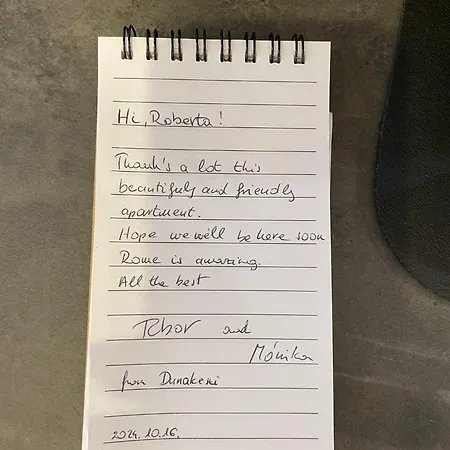 Hi, Roberta!
Thank's a lot this
beautifuly and friendly
apartment.
Hope we we'll be here soon
Rome is amazing.
All the best
Tibor and
Mónika
from Dunakeszi
2024.10.16.